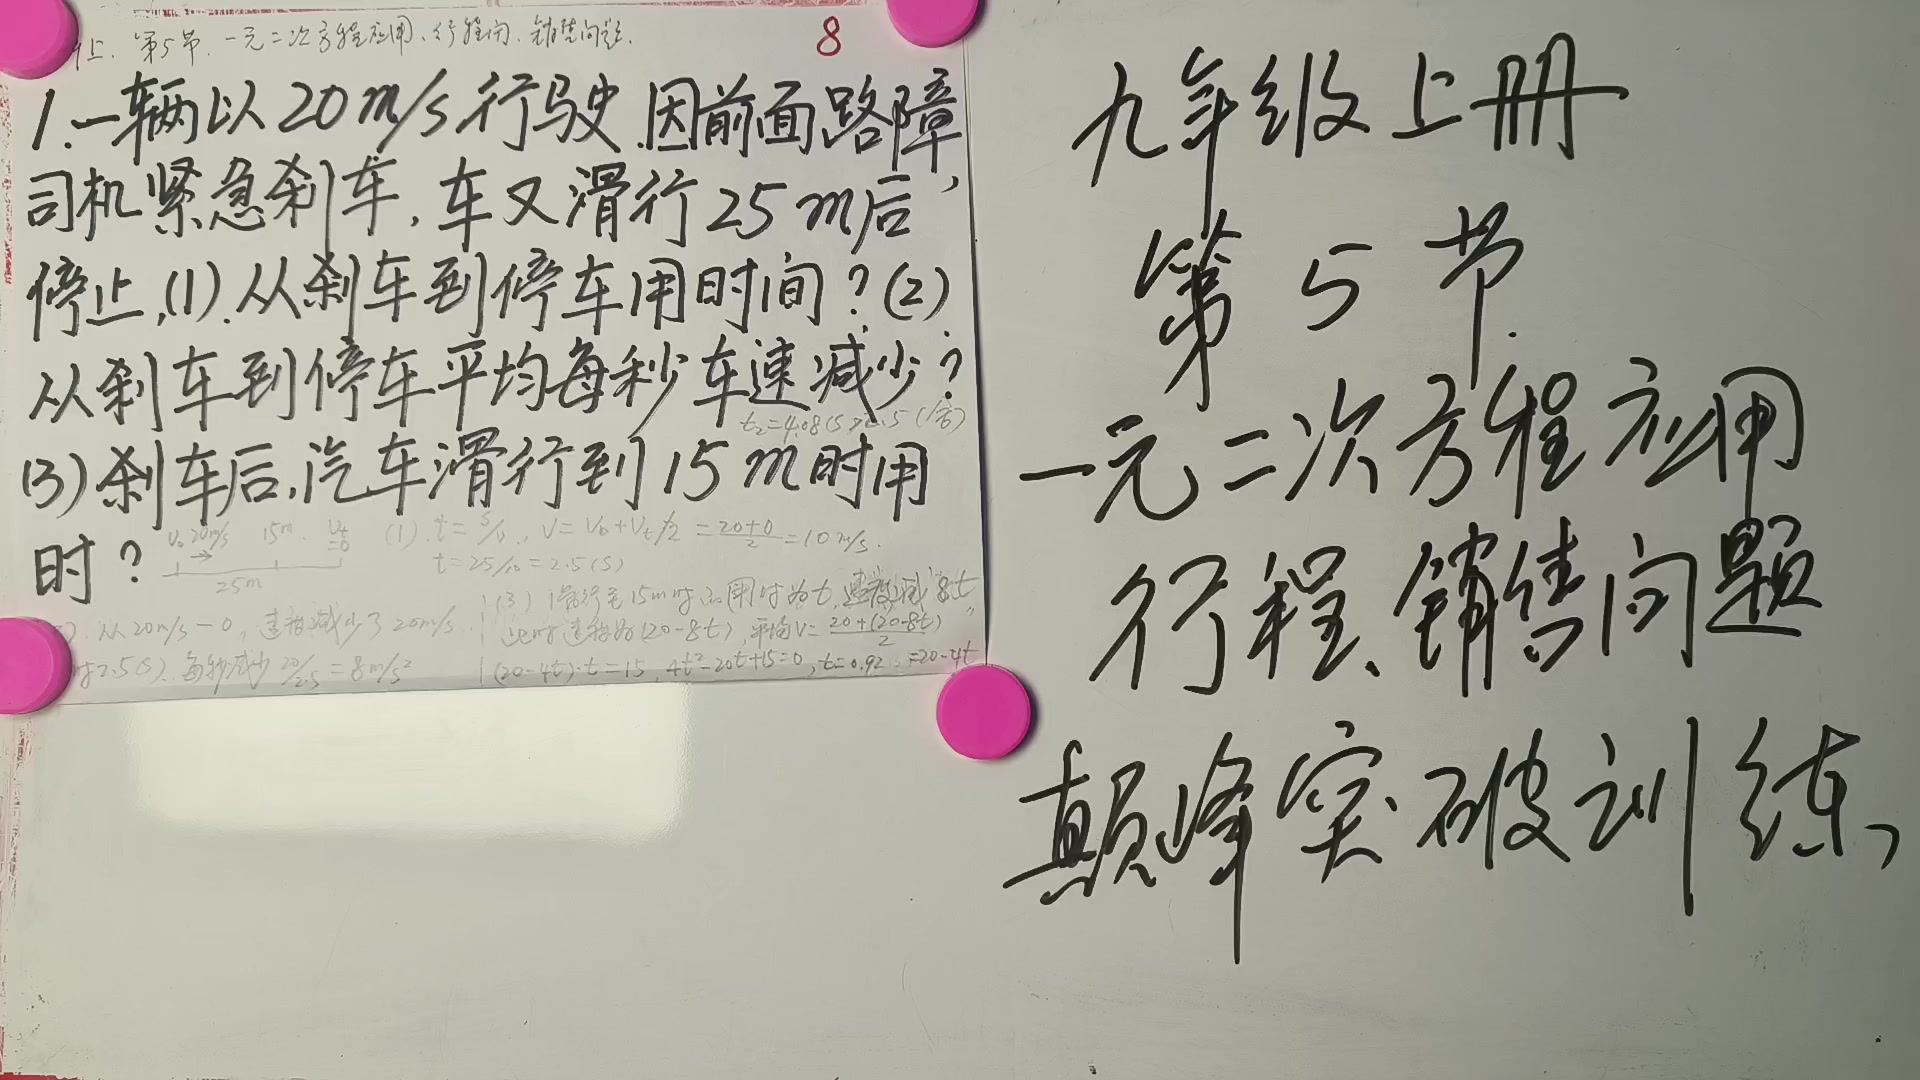 上. 第5节. 一元二次方程应用、行程问、销售问题.
8
1.一辆以20m/s行驶.因前面路障,
司机紧急刹车,车又滑行25m后
停止,(1).从刹车到停车用时间?(2)
从刹车到停车平均每秒车速减少?
t₂=4.08(s)>2.5(舍)
(3)刹车后,汽车滑行到15m时用
时?
V₀ 20m/s 15m. Vt=0
25m
(1).t=S/V, V=V₀+Vt/2=(20+0)/2=10m/s.
t=25/10=2.5(s)
从20m/s-0,速度减少了20m/s.
时2.5(s).每秒减少20/2.5=8m/s²
(3)滑行至15m时所用时为t,速度减8t,
此时速度为(20-8t),平均V=(20+(20-8t))/2
=20-4t
(20-4t)·t=15,4t²-20t+15=0,t=0.92
九年级上册
第5节.
一元二次方程应用
行程、销售问题
颠峰突破训练,